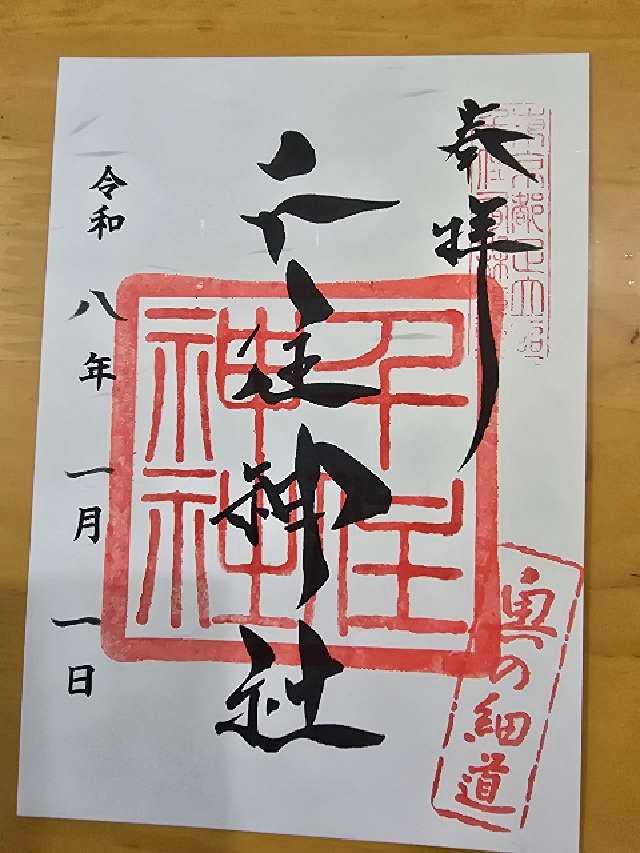 奉拝
千住神社
令和八年一月一日
千住
神社
奥の細道